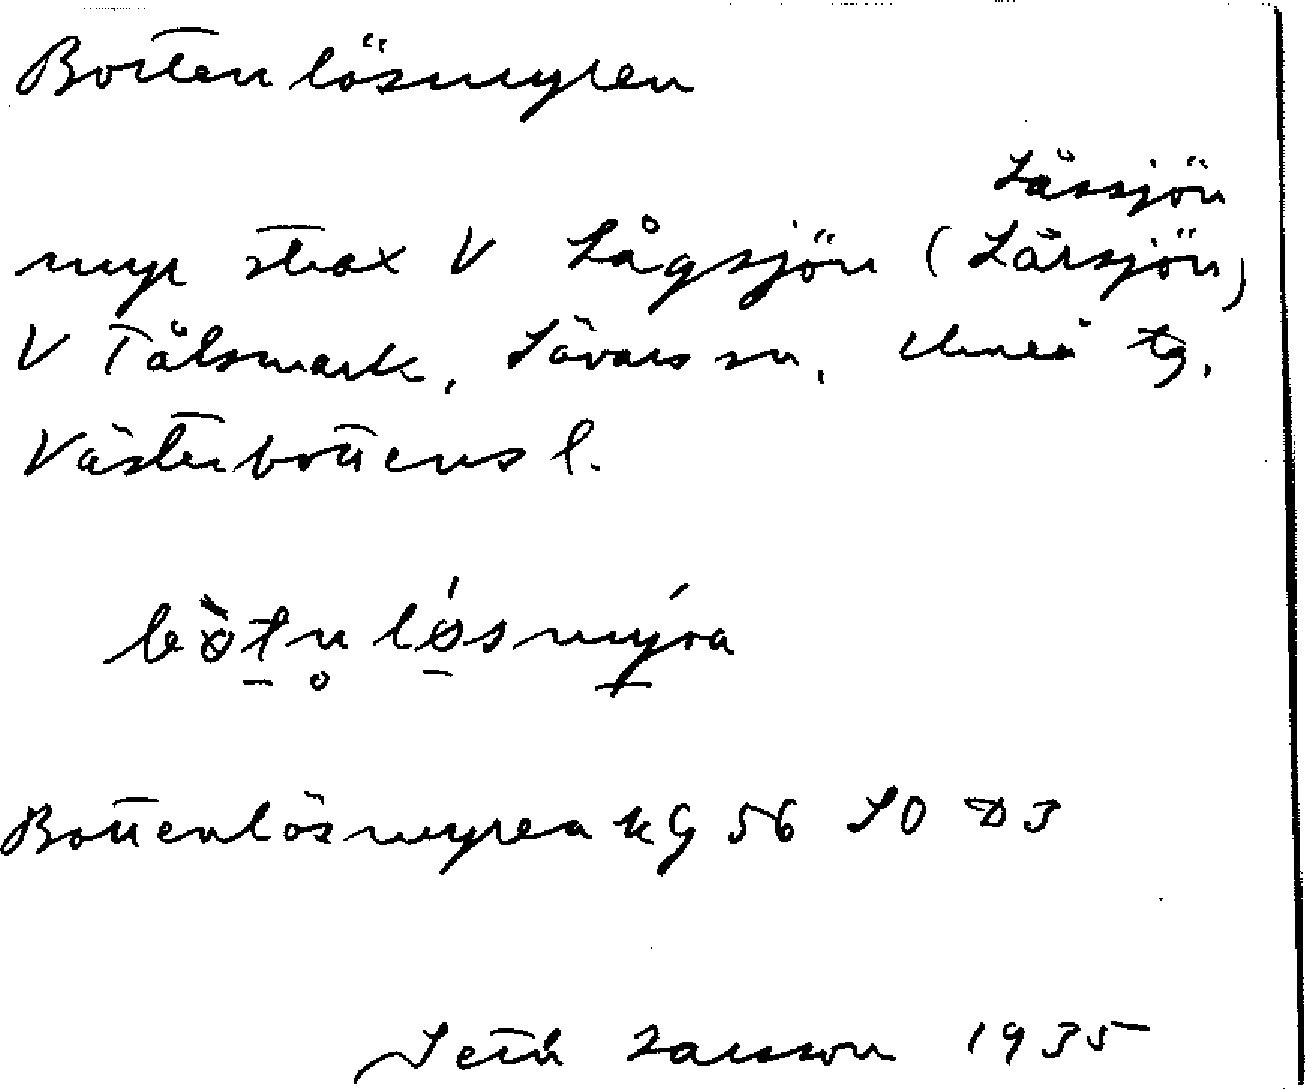 Bottenlösmyren
Låssjön
myr strax V Lågsjön (Lårsjön)
V Tålsmark, Sävars sn, Umeå tg,
Västerbottens l.
lösmýra
Bottenlösmyren kg 56 SO D3
Seth Larsson 1935